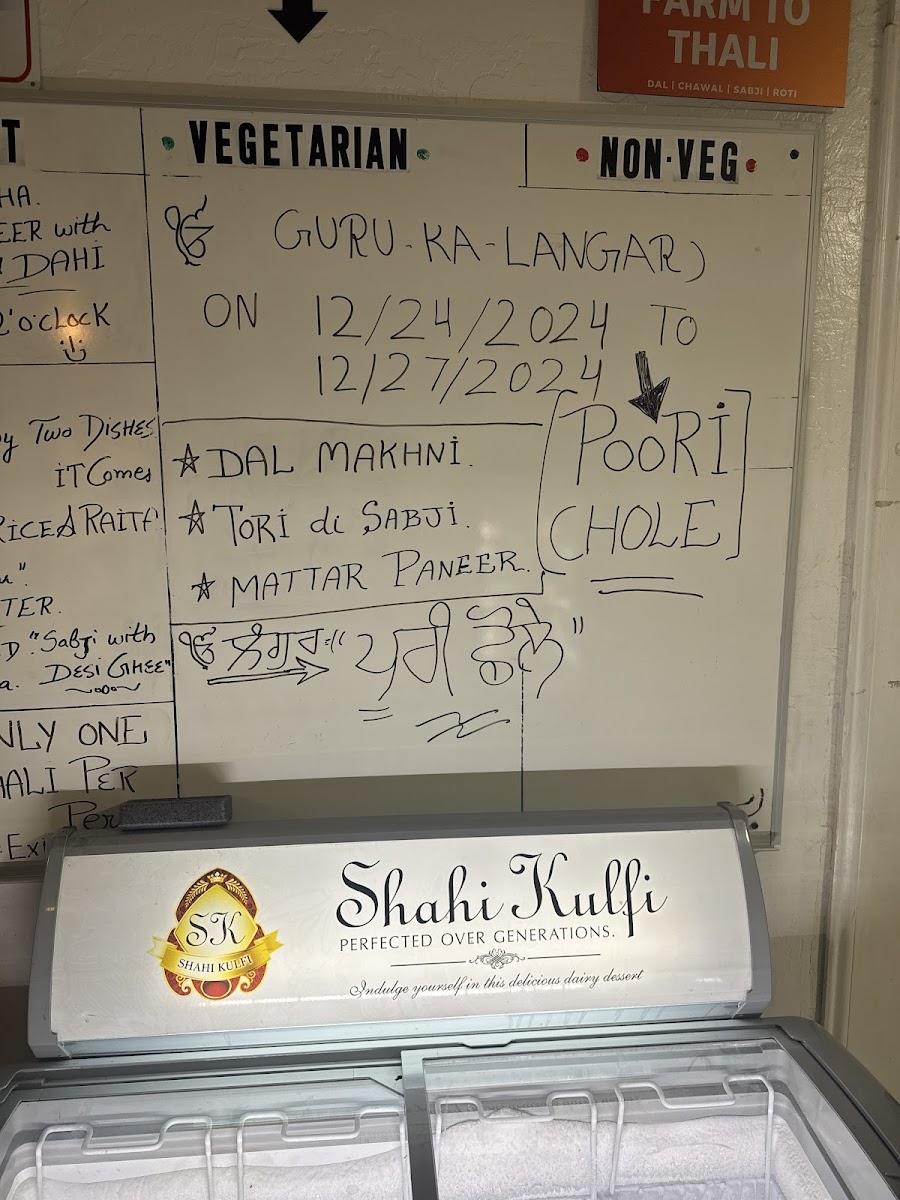 FARM TO
THALI
DAL | CHAWAL | SABJI | ROTI
T
VEGETARIAN
NON-VEG
HA.
EER with
DAHI
'O'CLOCK
ੴ GURU-KA-LANGAR)
ON 12/24/2024 TO
12/27/2024
y TWO DISHES
iT Comes
RICE & RAITA
TER.
D "Sabji with
a. DESI GHEE"
NLY ONE
HALI PER
Per
Exi
☆ DAL MAKHNI.
☆ TORI di SABJI.
☆ MATTAR PANEER.
[POORI
CHOLE]
ੴ ਲੰਗਰ:-" ਪੂਰੀ ਛੋਲੇ"
SK
SHAHI KULFI
Shahi Kulfi
PERFECTED OVER GENERATIONS.
Indulge yourself in this delicious dairy dessert